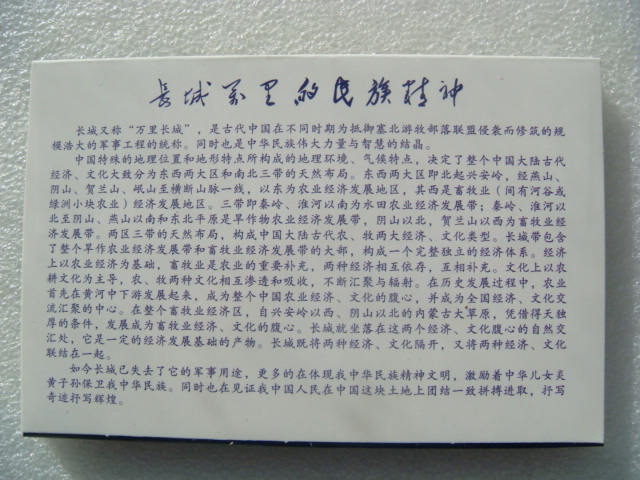 长城万里的民族精神
长城又称“万里长城”，是古代中国在不同时期为抵御塞北游牧部落联盟侵袭而修筑的规
模浩大的军事工程的统称。同时也是中华民族伟大力量与智慧的结晶。
中国特殊的地理位置和地形特点所构成的地理环境、气候特点，决定了整个中国大陆古代
经济、文化大致分为东西两大区和南北三带的天然布局。东西两大区即北起兴安岭，经燕山、
阴山、贺兰山、岷山至横断山脉一线，以东为农业经济发展地区，其西是畜牧业（间有河谷或
绿洲小块农业）经济发展地区。三带即秦岭、淮河以南为水田农业经济发展带；秦岭、淮河以
北至阴山、燕山以南和东北平原是旱作物农业经济发展带，阴山以北，贺兰山以西为畜牧业经
济发展带。两区三带的天然布局，构成中国大陆古代农、牧两大经济、文化类型。长城带包含
了整个旱作农业经济发展带和畜牧业经济发展带的大部，构成一个完整独立的经济体系。经济
上以农业经济为基础，畜牧业是农业的重要补充，两种经济相互依存，互相补充。文化上以农
耕文化为主导，农、牧两种文化相互渗透和吸收，不断汇聚与辐射。在历史发展过程中，农业
首先在黄河中下游发展起来，成为整个中国农业经济、文化的腹心，并成为全国经济、文化交
流汇聚的中心。在整个畜牧业经济区，自兴安岭以西、阴山以北的内蒙古大草原，凭借得天独
厚的条件，发展成为畜牧业经济、文化的腹心。长城就坐落在这两个经济、文化腹心的自然交
汇处，它是一定的经济发展基础的产物。长城既将两种经济、文化隔开，又将两种经济、文化
联结在一起。
如今长城已失去了它的军事用途，更多的在体现我中华民族精神文明，激励着中华儿女炎
黄子孙保卫我中华民族。同时也在见证我中国人民在中国这块土地上团结一致拼搏进取，抒写
奇迹抒写辉煌。